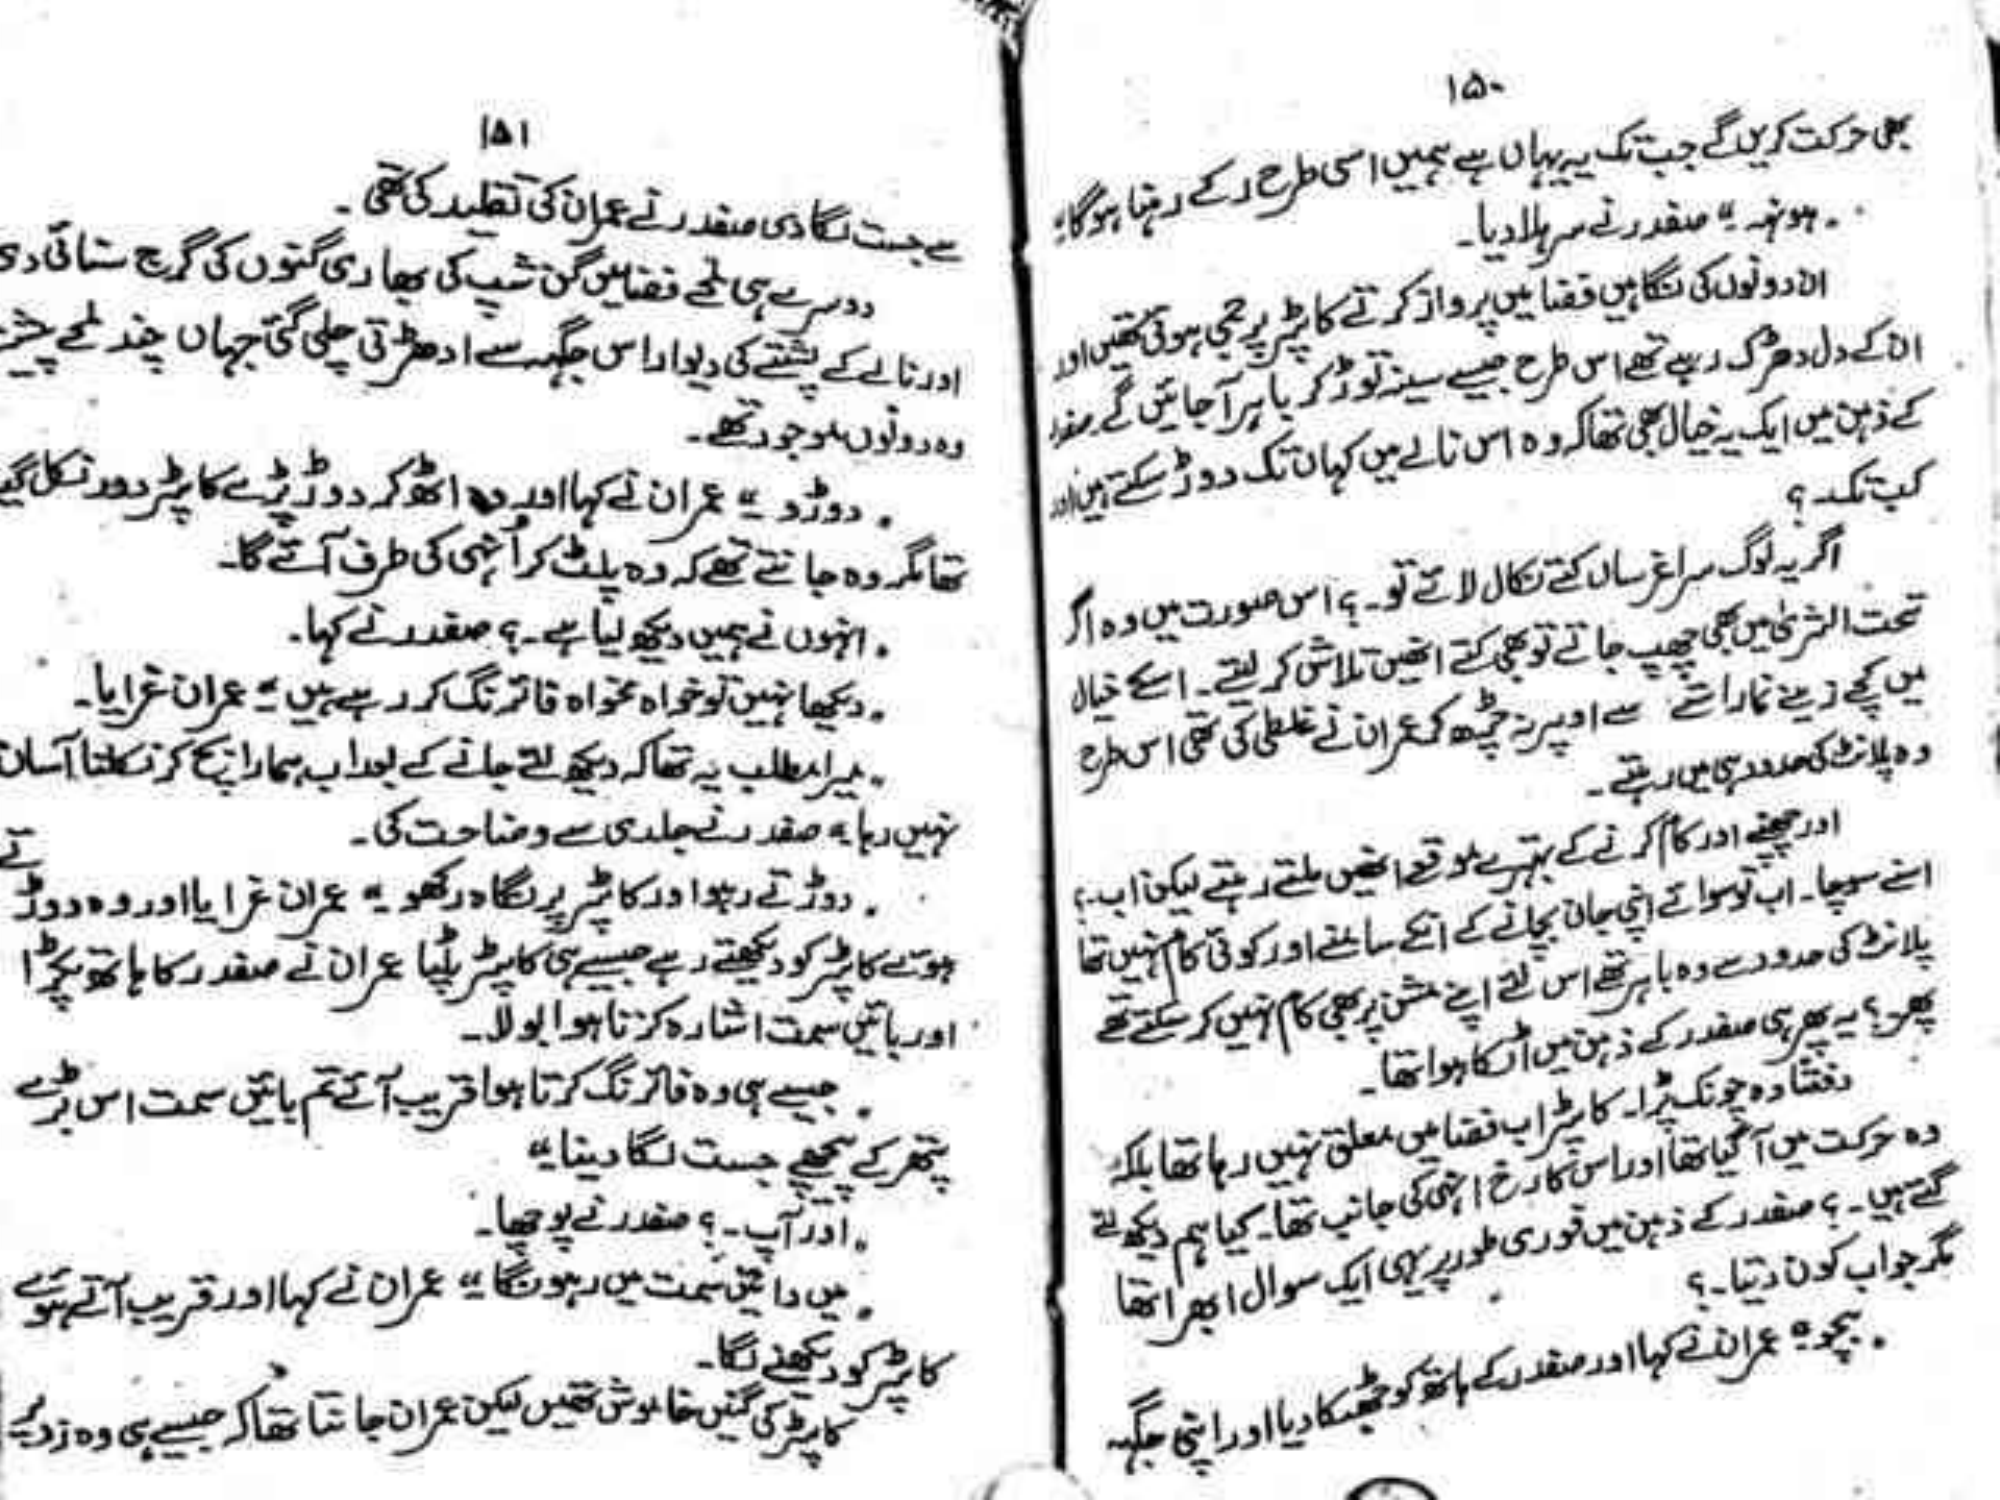 ۱۵۰
بھی حرکت کریں گے جب تک یہ یہاں ہے ہمیں اسی طرح رکے رہنا ہوگا"
۔ ہونہہ " صفدر نے سر ہلا دیا۔
ان دونوں کی نگاہیں فضا میں پرواز کرتے کاپٹر پر جمی ہوئی تھیں اور
ان کے دل دھڑک رہے تھے اس طرح جیسے سینہ توڑ کر باہر آجائیں گے۔ صفدر
کے ذہن میں ایک یہ خیال بھی تھا کہ وہ اس نالے میں کہاں تک دوڑ سکتے ہیں اور
کب تک۔؟
اگر یہ لوگ سراغرساں کتے نکال لائے تو۔؟ اس صورت میں وہ اگر
تحت الثریٰ میں بھی چھپ جاتے تو بھی کتے انھیں تلاش کر لیتے۔ اسکے خیال
میں کچے زینے نما راستے سے اوپر نہ چڑھ کر عمران نے غلطی کی تھی اس طرح
وہ پلانٹ کی حدود ہی میں رہتے۔
اور چھپنے اور کام کرنے کے بہتیرے موقعے انھیں ملتے رہتے لیکن اب۔؟
اسنے سوچا۔ اب تو سوائے اپنی جان بچانے کے انکے سامنے اور کوئی کام نہیں تھا
پلانٹ کی حدود سے وہ باہر تھے اس لئے اپنے مشن پر بھی کام نہیں کر سکتے تھے
پھر۔؟ یہ پھر ہی صفدر کے ذہن میں اٹکا ہوا تھا۔
دفعتًا وہ چونک پڑا۔ کاپٹر اب فضا میں معلق نہیں رہا تھا بلکہ
وہ حرکت میں آگیا تھا اور اس کا رخ انہی کی جانب تھا۔ کیا ہم دیکھ لئے
گئے ہیں۔؟ صفدر کے ذہن میں فوری طور پر یہی ایک سوال ابھرا تھا
مگر جواب کون دیتا۔؟
۔ بچو " عمران نے کہا اور صفدر کے ہاتھ کو جھٹکا دیا اور اپنی جگہ
۱۵۱
سے جست لگا دی صفدر نے عمران کی تقلید کی تھی۔
دوسرے ہی لمحے فضا میں گن شپ کی بھاری گنوں کی گرج سنائی دی
اور نالے کے پشتے کی دیوار اس جگہ سے ادھڑتی چلی گئی جہاں چند لمحے پیشتر
وہ دونوں موجود تھے۔
۔ دوڑو " عمران نے کہا اور وہ اٹھ کر دوڑ پڑے کاپٹر دور نکل گیا
تھا مگر وہ جانتے تھے کہ وہ پلٹ کر اُنہی کی طرف آئے گا۔
۔ انہوں نے ہمیں دیکھ لیا ہے۔؟ صفدر نے کہا۔
۔ دیکھا نہیں تو خواہ مخواہ فائرنگ کر رہے ہیں " عمران غرایا۔
۔ میرا مطلب یہ تھا کہ دیکھ لئے جانے کے بعد اب ہمارا بچ کر نکلنا آسان
نہیں رہا " صفدر نے جلدی سے وضاحت کی۔
۔ دوڑتے رہو اور کاپٹر پر نگاہ رکھو " عمران غرایا اور وہ دوڑتے
ہوئے کاپٹر کو دیکھتے رہے جیسے ہی کاپٹر پلٹا عمران نے صفدر کا ہاتھ پکڑا
اور بائیں سمت اشارہ کرتا ہوا بولا۔
۔ جیسے ہی وہ فائرنگ کرتا ہوا قریب آئے تم بائیں سمت اس بڑے
پتھر کے پیچھے جست لگا دینا "
۔ اور آپ۔؟ صفدر نے پوچھا۔
۔ میں دائیں سمت میں رہونگا " عمران نے کہا اور قریب آتے ہوئے
کاپٹر کو دیکھنے لگا۔
کاپٹر کی گنیں خاموش تھیں لیکن عمران جانتا تھا کہ جیسے ہی وہ زد پر